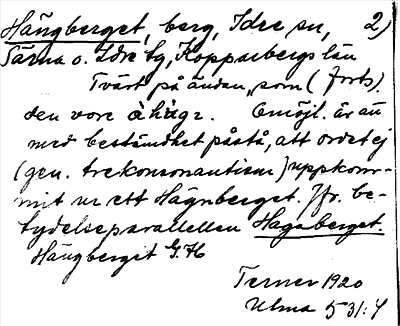 Hängberget, berg, Idre sn, 2)
Särna o. Idre tg, Kopparbergs län
Tvärt på änden, som (forts).
den vore åhägr. Omöjl. är att
med bestämdhet påstå, att ordet ej
(gen. trekonsonantism) uppkom-
mit ur ett Hägnberget. Jfr. be-
tydelseparallellen Hagaberget.
Hängberget G.K
Terner 1920
Ulma 531:4